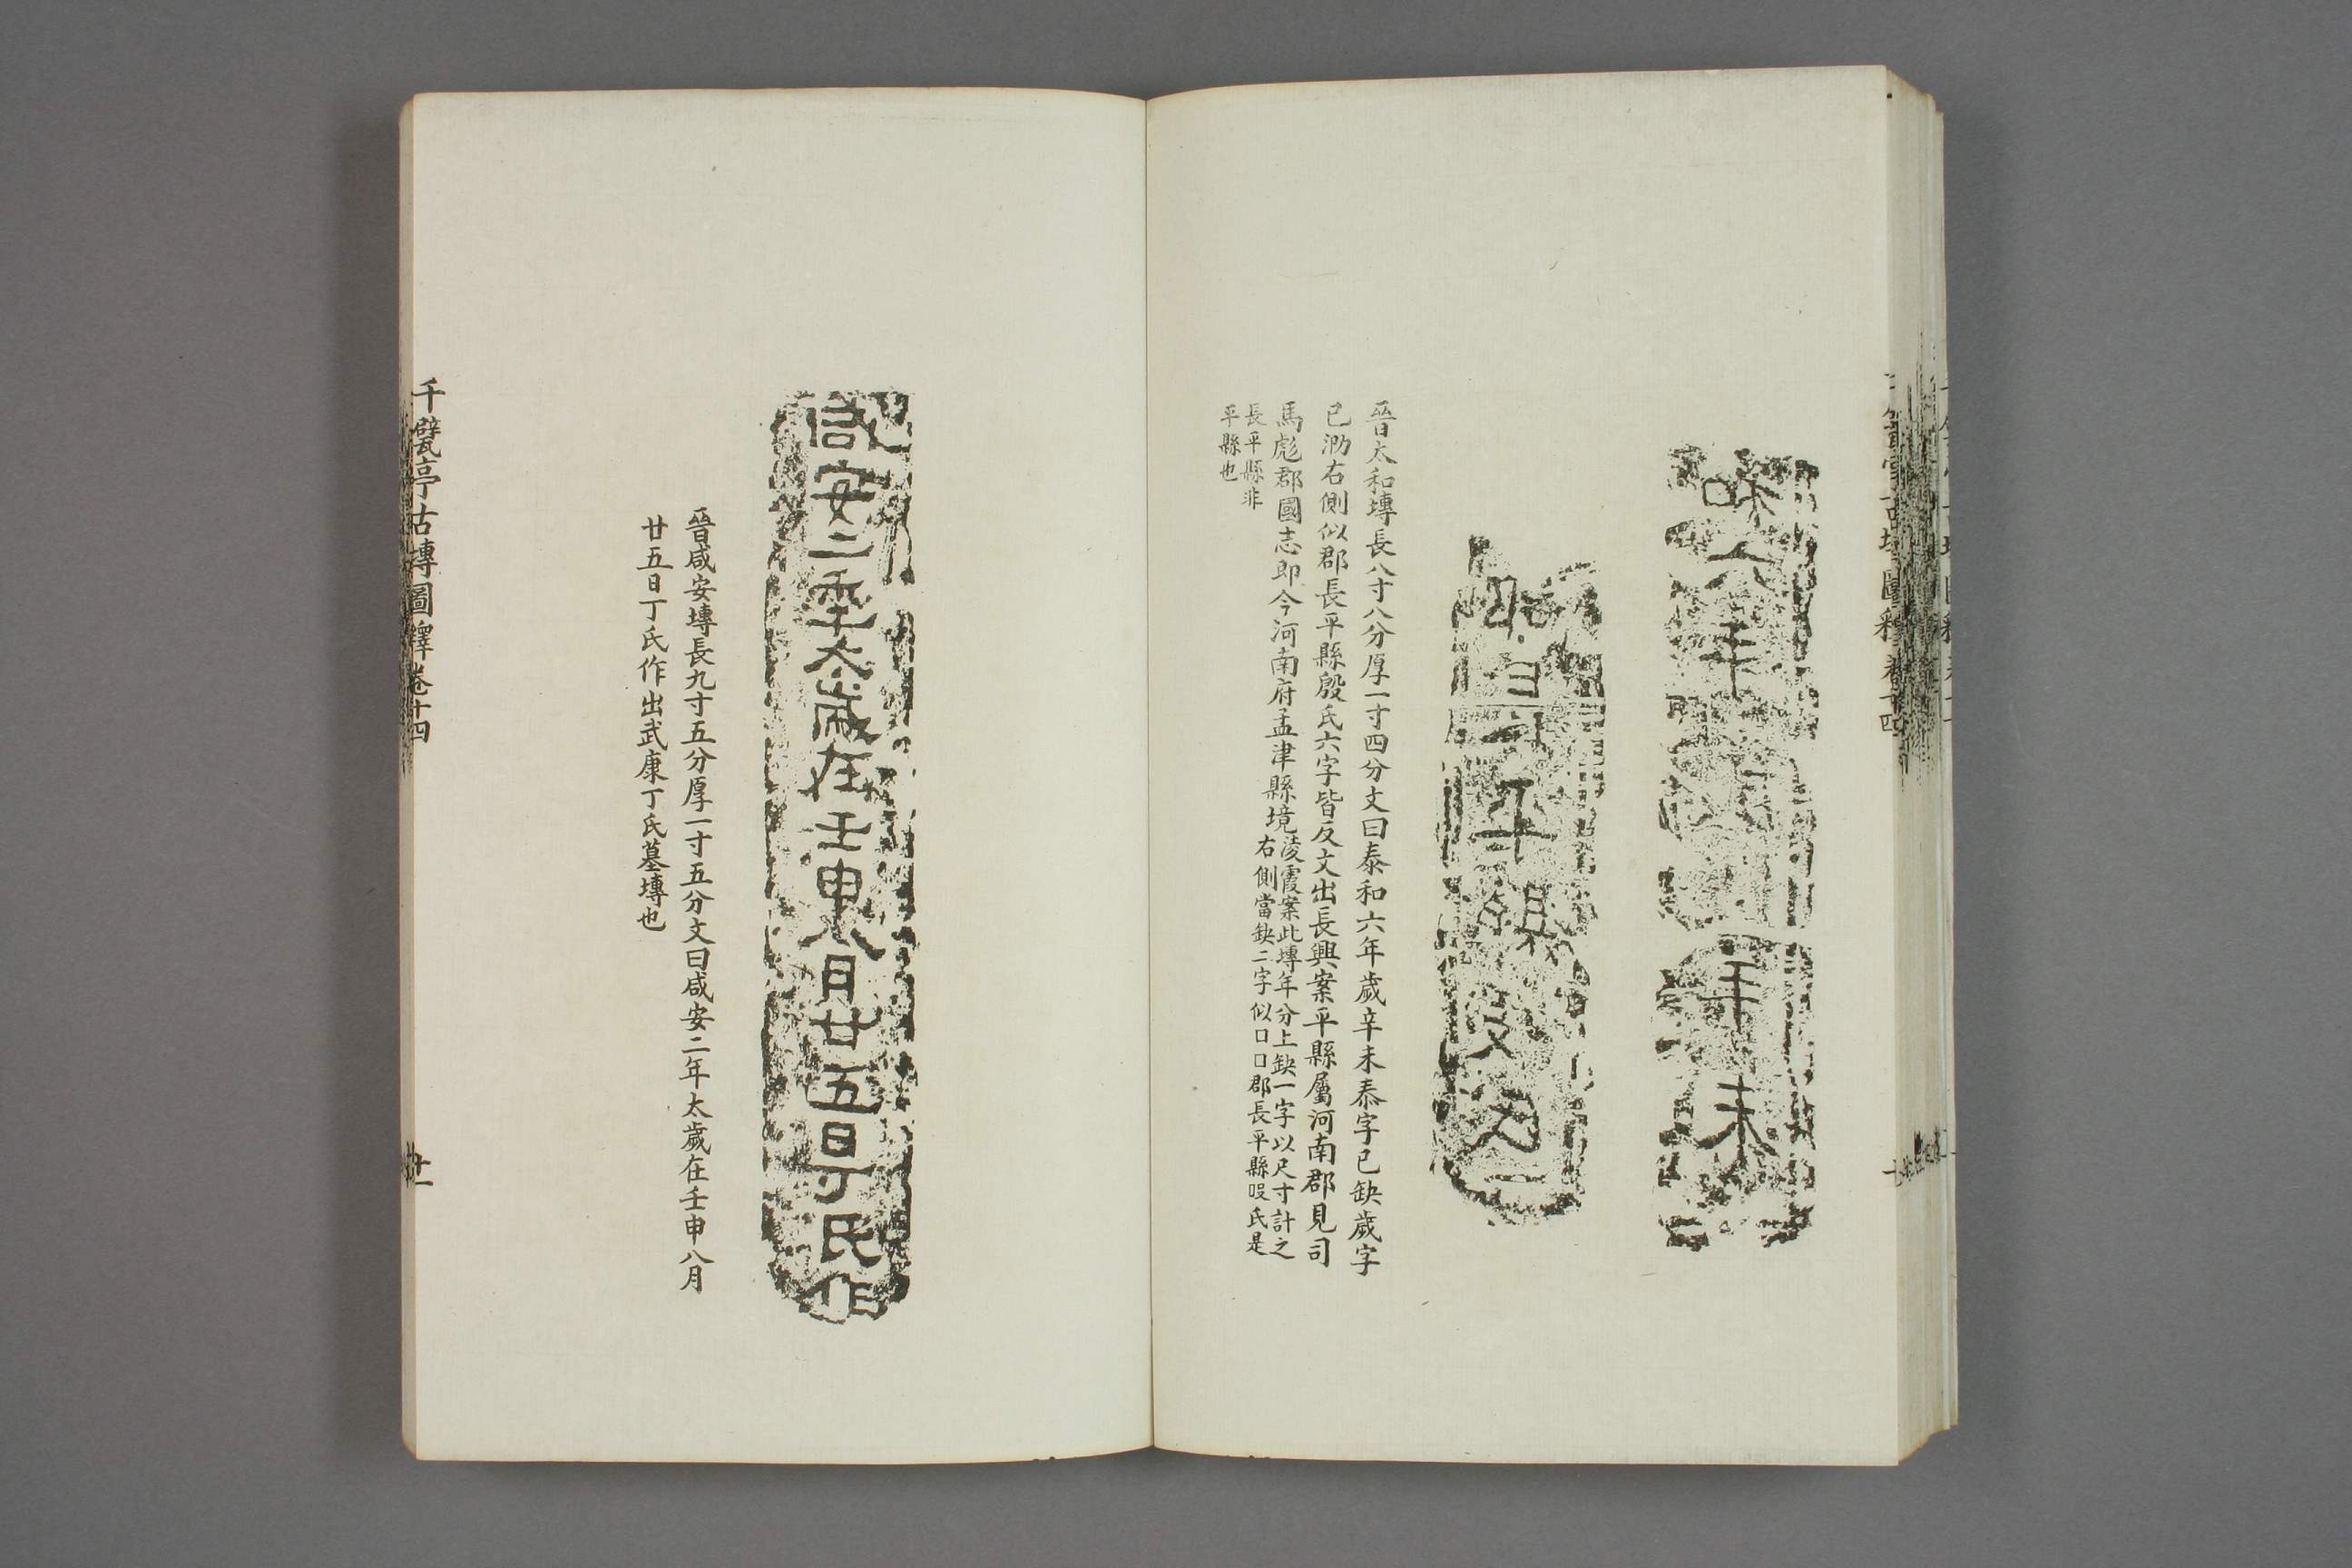 晉太和塼長八寸八分厚一寸四分文曰泰和六年歲辛未泰字已缺歲字
已泐右側似郡長平縣殷氏六字皆反文出長興案平縣屬河南郡見司
馬彪郡國志即今河南府孟津縣境
凌霞案此塼年分上缺一字以尺寸計之
右側當缺二字似口口郡長平縣叚氏是
長平縣非
平縣也
咸安二年太歲在壬申八月廿五日丁氏作
晉咸安塼長九寸五分厚一寸五分文曰咸安二年太歲在壬申八月
廿五日丁氏作出武康丁氏墓塼也
千甓亭古塼圖釋卷十四